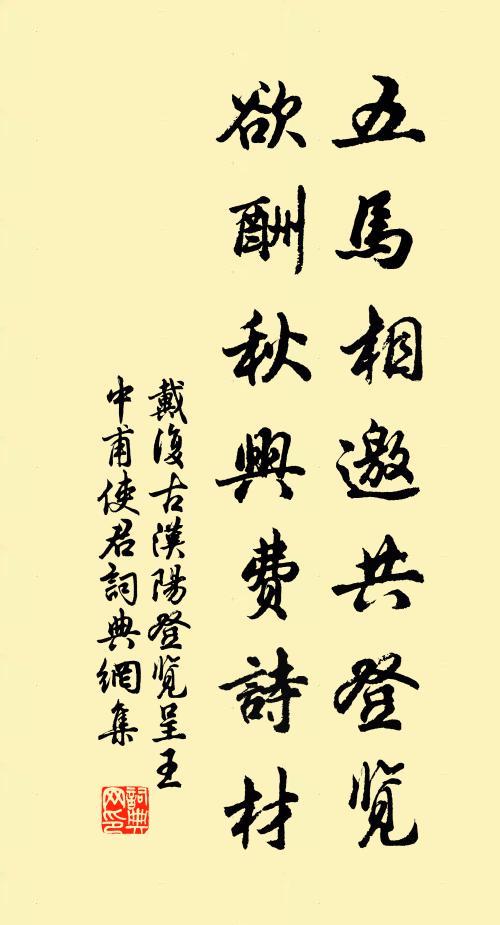 五馬相邀共登览
欲酬秋興費詩材
戴復古漢陽登览呈王
中甫使君詞典網集
詞典
网印